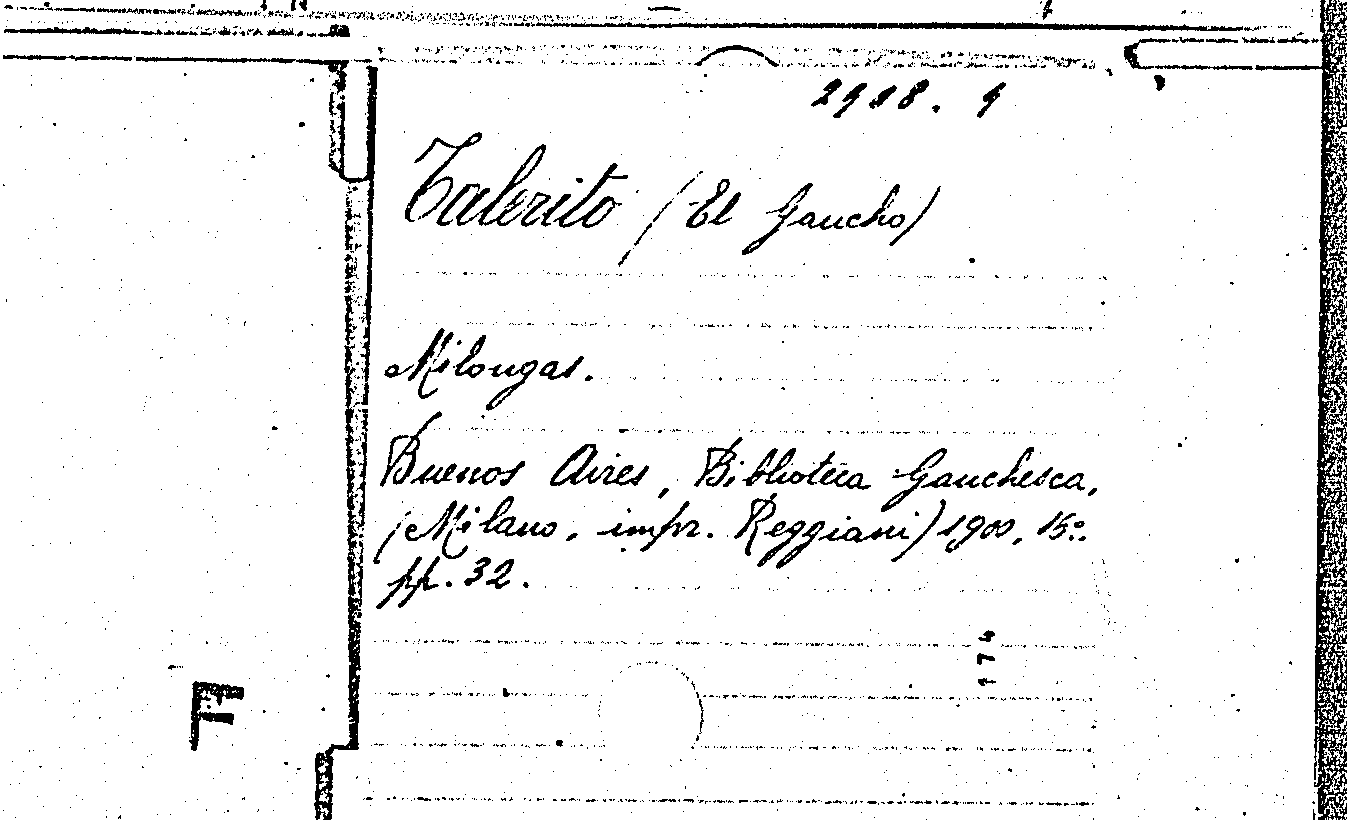 2928. 9
Talerito (El Gaucho)
Milongas.
Buenos Aires, Biblioteca Gauchesca,
(Milano, impr. Reggiani) 1900, 15º.
pp. 32.
174
F